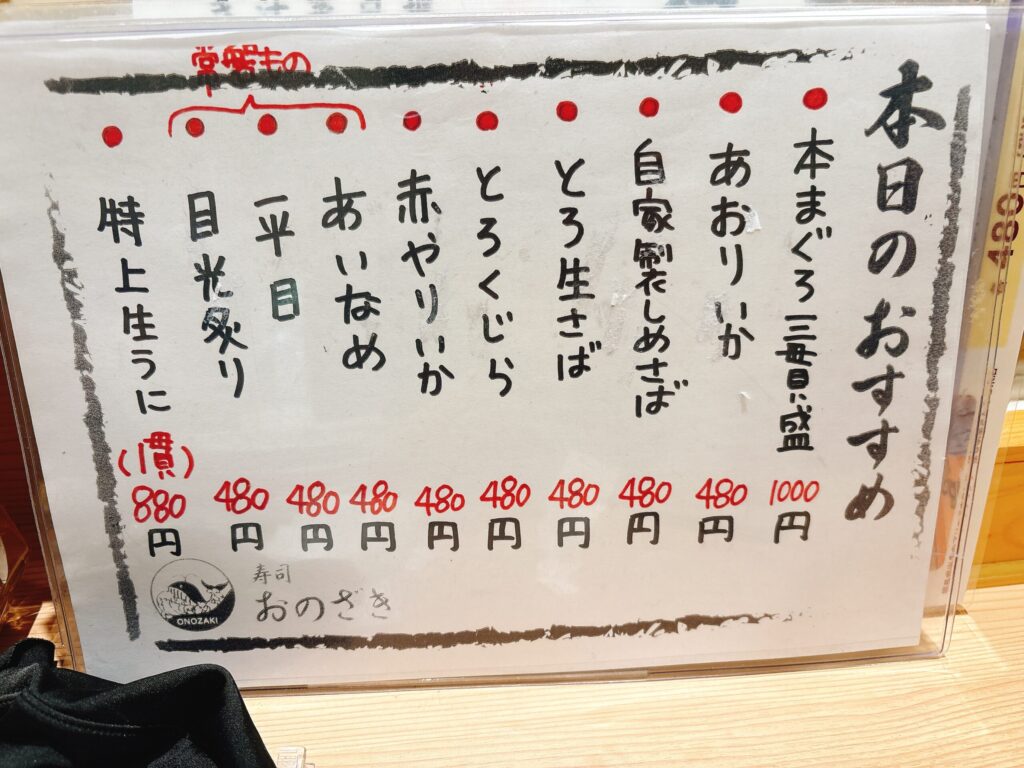 本日のおすすめ
本まぐろ三貫盛
1000円
あおりいか
480円
自家製しめさば
480円
とろ生さば
480円
とろくじら
480円
赤やりいか
480円
常磐もの
あいなめ
480円
平目
480円
目光炙り
480円
特上生うに
(1貫)
880円
寿司
おのざき
ONOZAKI
480